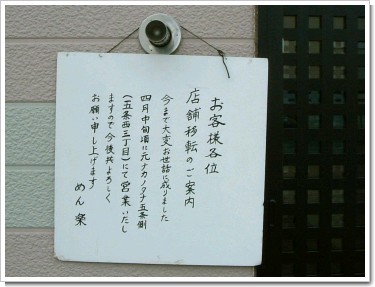 お客様各位
店舗移転のご案内
今まで大変お世話に成りました
四月中旬頃に元ナカノヌナ五条側
(五条西三丁目)にて営業いたし
ますので今後共よろしく
お願い申し上げます
めん楽